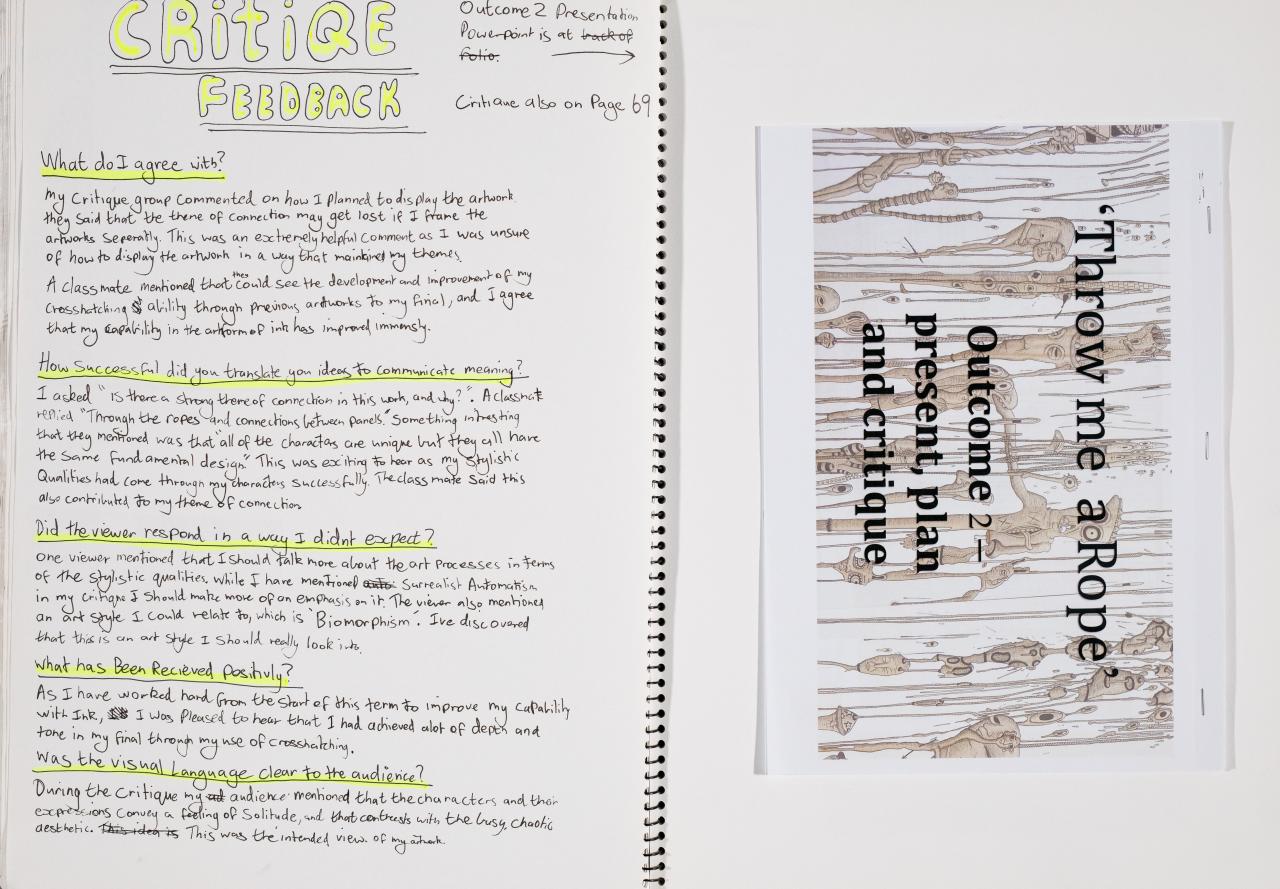 CRitiQE
FEEDBACK
Outcome 2 Presentation
Powerpoint is at back of
folio.
Critique also on Page 69
What do I agree with?
My Critique group commented on how I planned to display the artwork
they said that the theme of connection may get lost if I frame the
artworks seperatly. This was an extremely helpful comment as I was unsure
of how to display the artwork in a way that my themes.
A classmate mentioned that they could see the development and improvement of my
crosshatching ability through previous artworks to my final, and I agree
that my capability in the artform of ink has improved immensly.
How Successful did you translate you ideas to communicate meaning?
I asked "is there a strong theme of connection in this work, and why?". A classmate
replied "Through the ropes and connections between panels." Something intresting
that they mentioned was that "all of the charactors are unique but they all have
the same fundamental design." This was exciting to hear as my stylistic
Qualities had come through my characters successfully. The class mate said this
also contributed to my theme of connection
Did the viewer respond in a way I didnt expect?
One viewer mentioned that I should talk more about the art processes in terms
of the stylistic qualities. While I have mentioned Surrealist Automatism
in my critique I should make more of an emphasis on it. The viewer also mentioned
an art style I could relate to, which is 'Biomorphism'. Ive discovered
that this is an art style I should really look into.
What has Been Recieved Positivly?
As I have worked hard from the start of this term to improve my capability
with Ink, I was pleased to hear that I had achieved alot of depth and
tone in my final through my use of crosshatching.
Was the visual Language clear to the audience?
During the Critique my audience mentioned that the characters and their
expressions convey a feeling of Solitude, and that contrasts with the busy, chaotic
aesthetic. This idea is This was the intended view of my artwork.
‘Throw me a Rope’
Outcome 2 –
present, plan
and critique